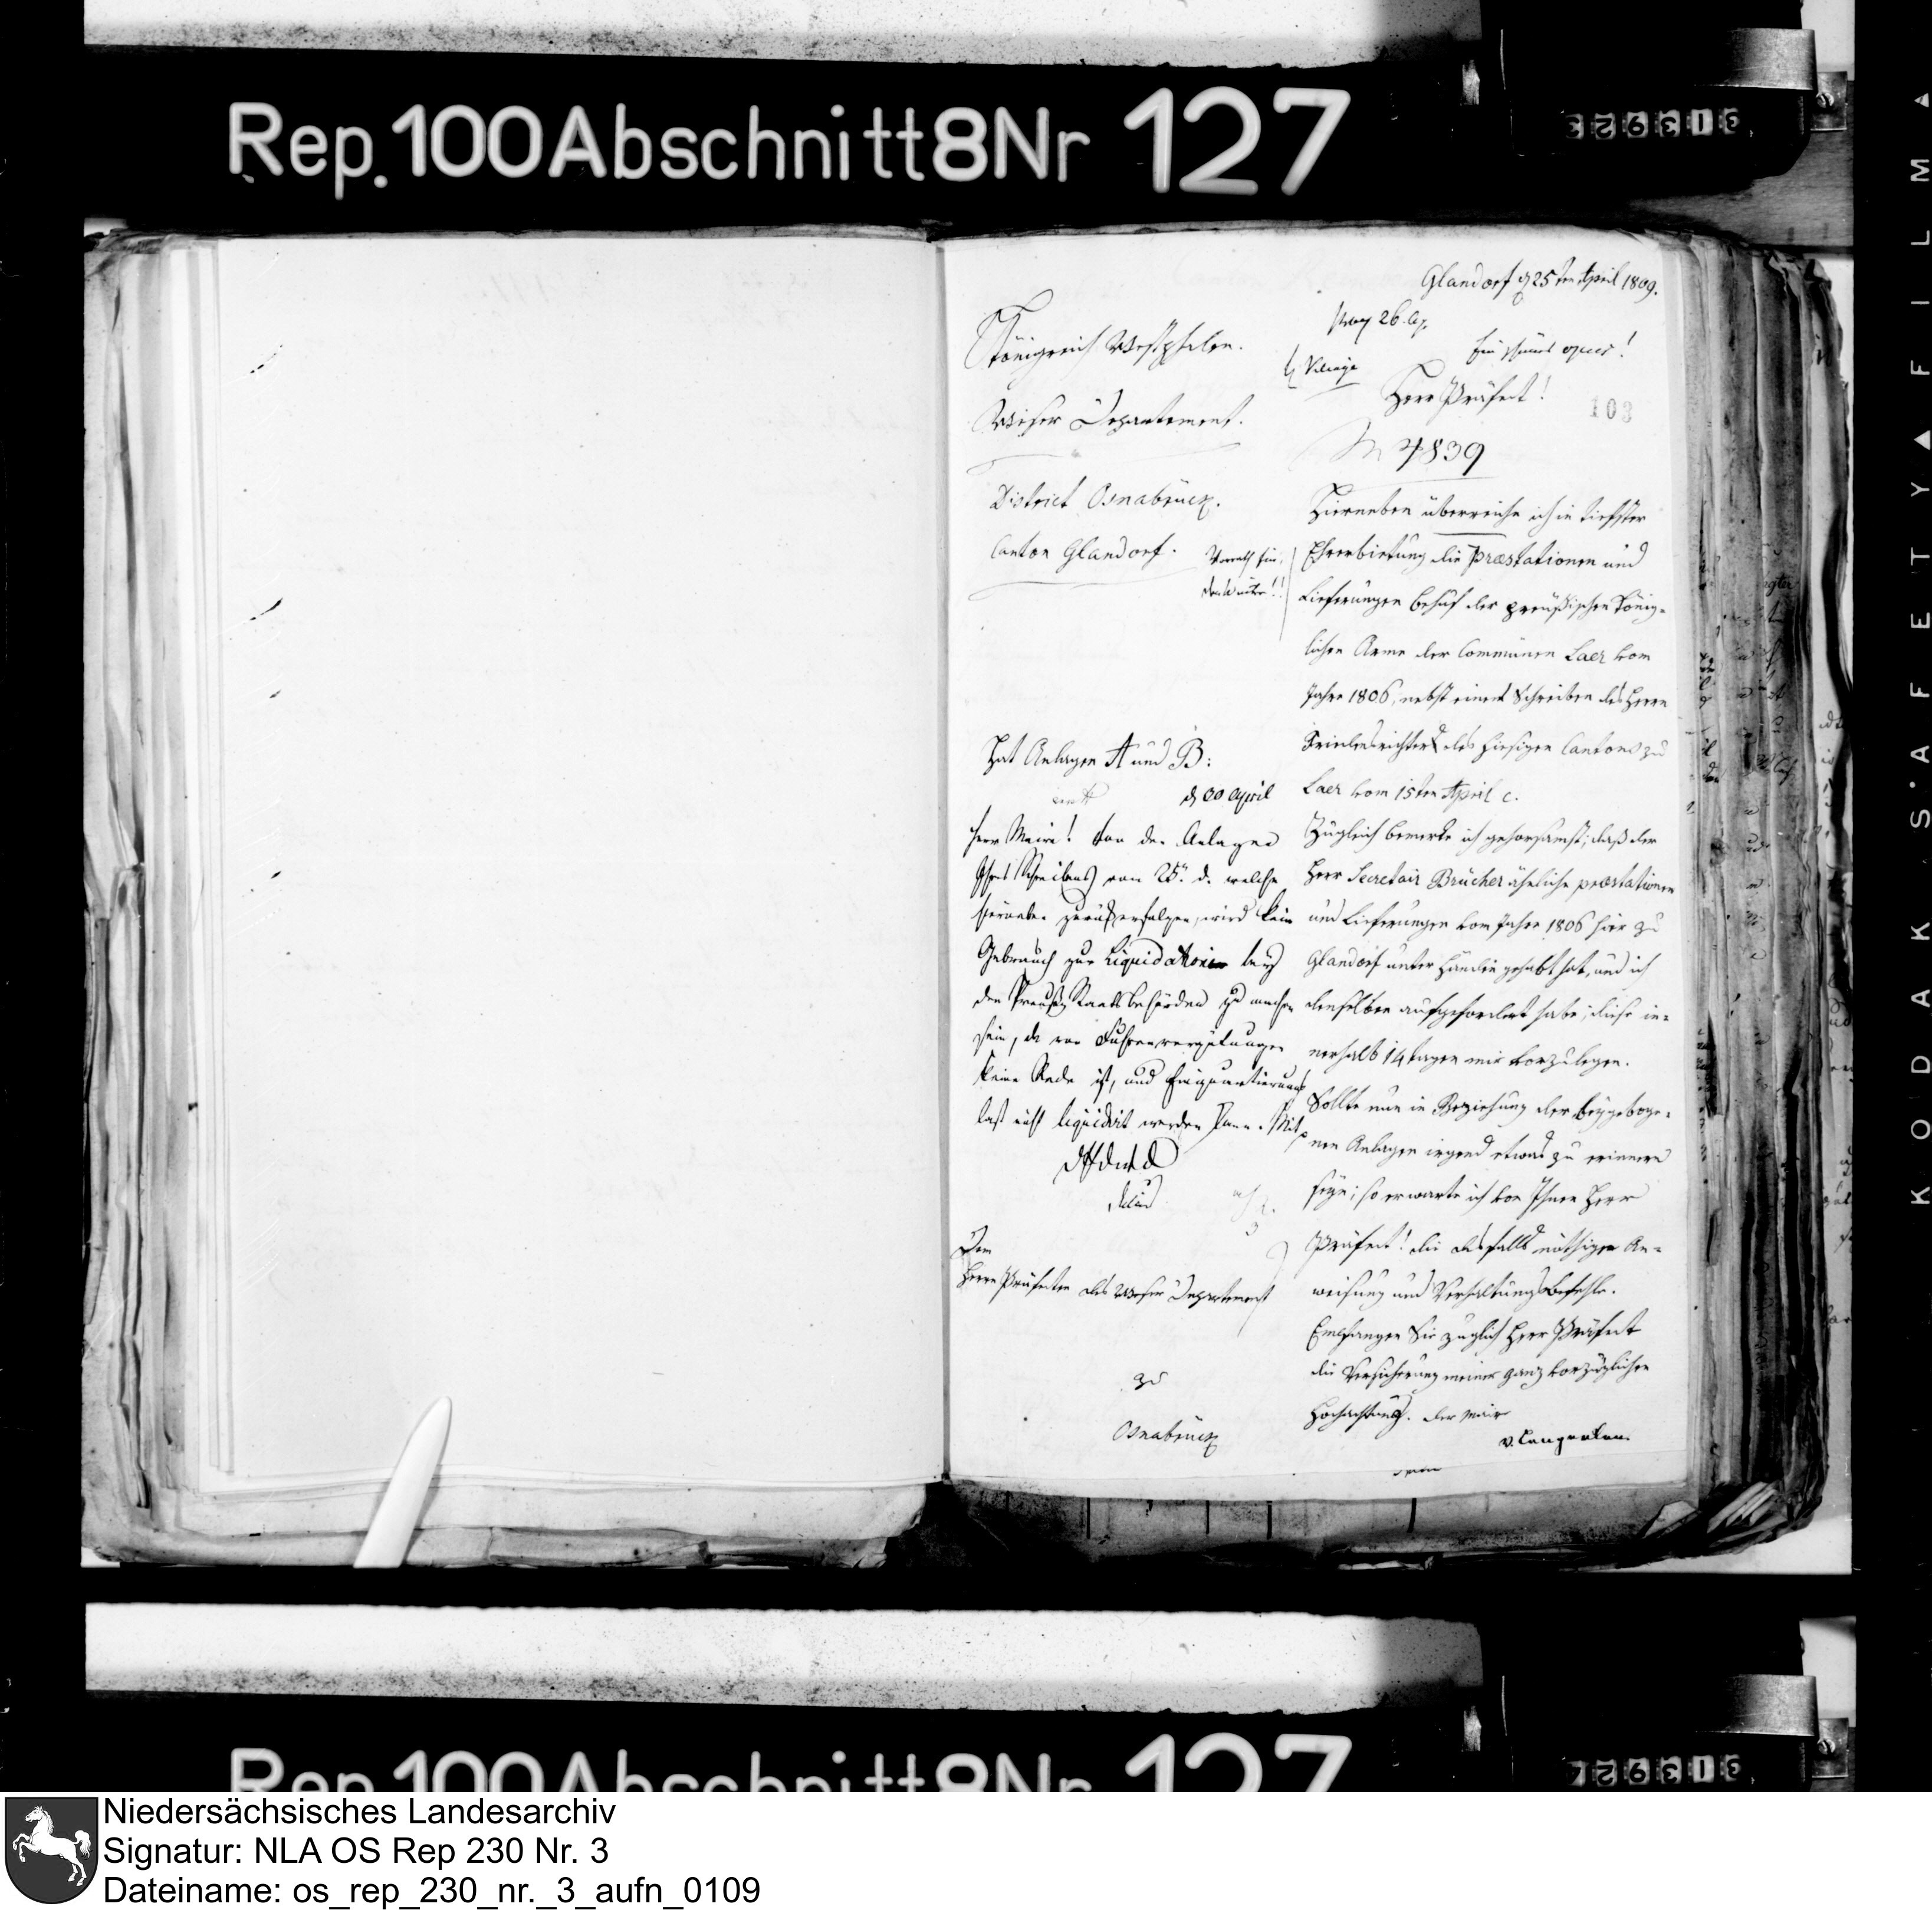 Rep. 100 Abschnitt 8 Nr 127
Glandorf d 25ten April 1809.
Königreich Westphalen.
Weser Departement.
District Osnabrück.
Canton Glandorf.
Herr Präfect!
103
N 4839
Hierneben überreiche ich in tiefster
Ehrerbietung die Præstationen und
Lieferungen behuf der preüßischen König-
lichen Arme der Communen Laer vom
Jahre 1806, nebst einem Schreiben des Herrn
Friedensrichters des hiesigen Cantons zu
Laer vom 15ten April c.
Zugleich bemerke ich gehorsamst, daß der
Herr Secretair Brücher ähnliche præstationen
und Lieferungen vom Jahre 1806 hier zu
Glandorf unter Händen gehabt hat, und ich
denselben aufgefordert habe, diese in-
nerhalb 14 tagen mir vorzulegen.
Sollte nun in Beziehung der beygeboge-
nen Anlagen irgend etwas zu erinnern
seyn; so erwarte ich von Ihnen Herr
Präfect! die desfalls nöthige An-
weisung und Verhaltungsbefehle.
Empfangen Sie zugleich Herr Präfect
die Versicherung meiner ganz vorzüglichen
Hochachtung. der Maire
Hat Anlagen A und B:
d 30 April
Herr Maire! Von den Anlagen
Ihres Schreibens vom 25. d. welche
hierneben zurückerfolgen, wird kein
Gebrauch zur Liquidation bey
den Preuß. Staatsbehörden zu machen
sein, da von Fuhrenvergütungen
keine Rede ist, und Einquartierungs
last nicht liquidirt werden kann. Mit
Dem
Herrn Präfecten des Weser Departement
zu
Osnabrück
KODAK SAFETY FILM
Rep. 100 Abschnitt 8 Nr 127
Niedersächsisches Landesarchiv
Signatur: NLA OS Rep 230 Nr. 3
Dateiname: os_rep_230_nr._3_aufn_0109